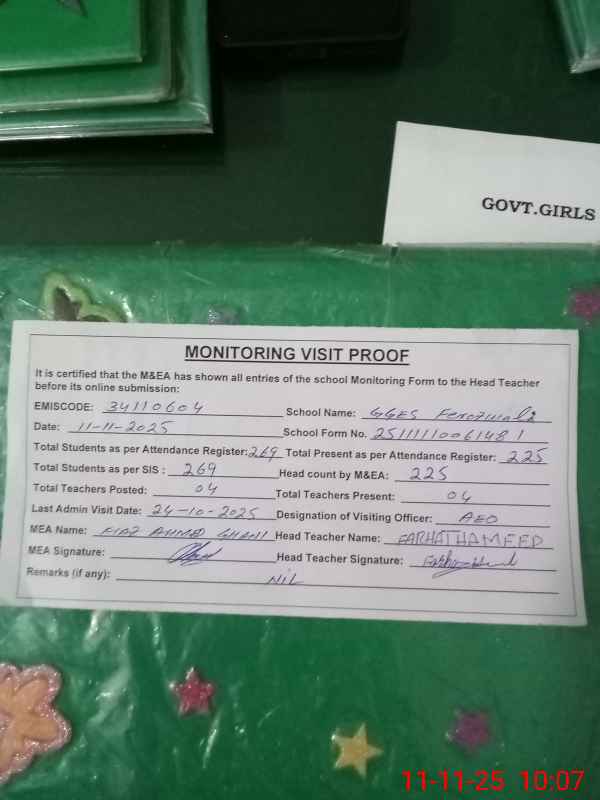 GOVT.GIRLS
MONITORING VISIT PROOF
It is certified that the M&EA has shown all entries of the school Monitoring Form to the Head Teacher
before its online submission:
EMISCODE: 34110604 School Name: GGES
Date: 11-11-2025 School Form No.
Total Students as per Attendance Register: 269 Total Present as per Attendance Register: 225
Total Students as per SIS : 269 Head count by M&EA: 225
Total Teachers Posted: 04 Total Teachers Present: 04
Last Admin Visit Date: 24-10-2025 Designation of Visiting Officer: AEO
MEA Name: FIAZ AHMED GHANI Head Teacher Name: FARHATHAMEED
MEA Signature: Head Teacher Signature:
Remarks (if any): NIL
11-11-25 10:07